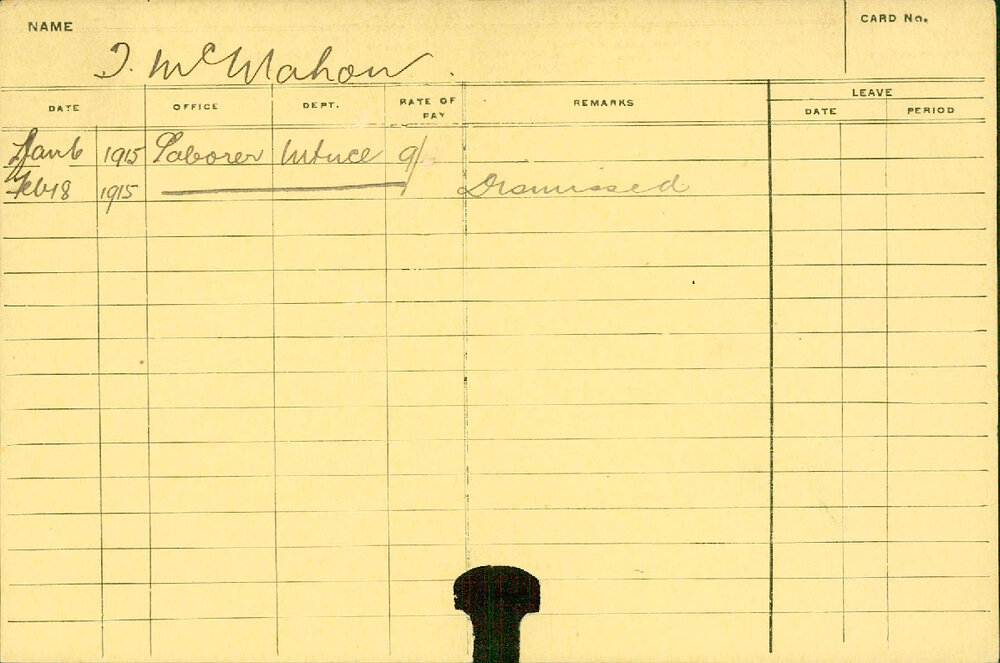 NAME
CARD No.
J. McMahon.
DATE OFFICE DEPT. RATE OF PAY REMARKS LEAVE
DATE PERIOD
Jan 6 1915 Laborer Mtnce 9/
Feb 18 1915 Dismissed